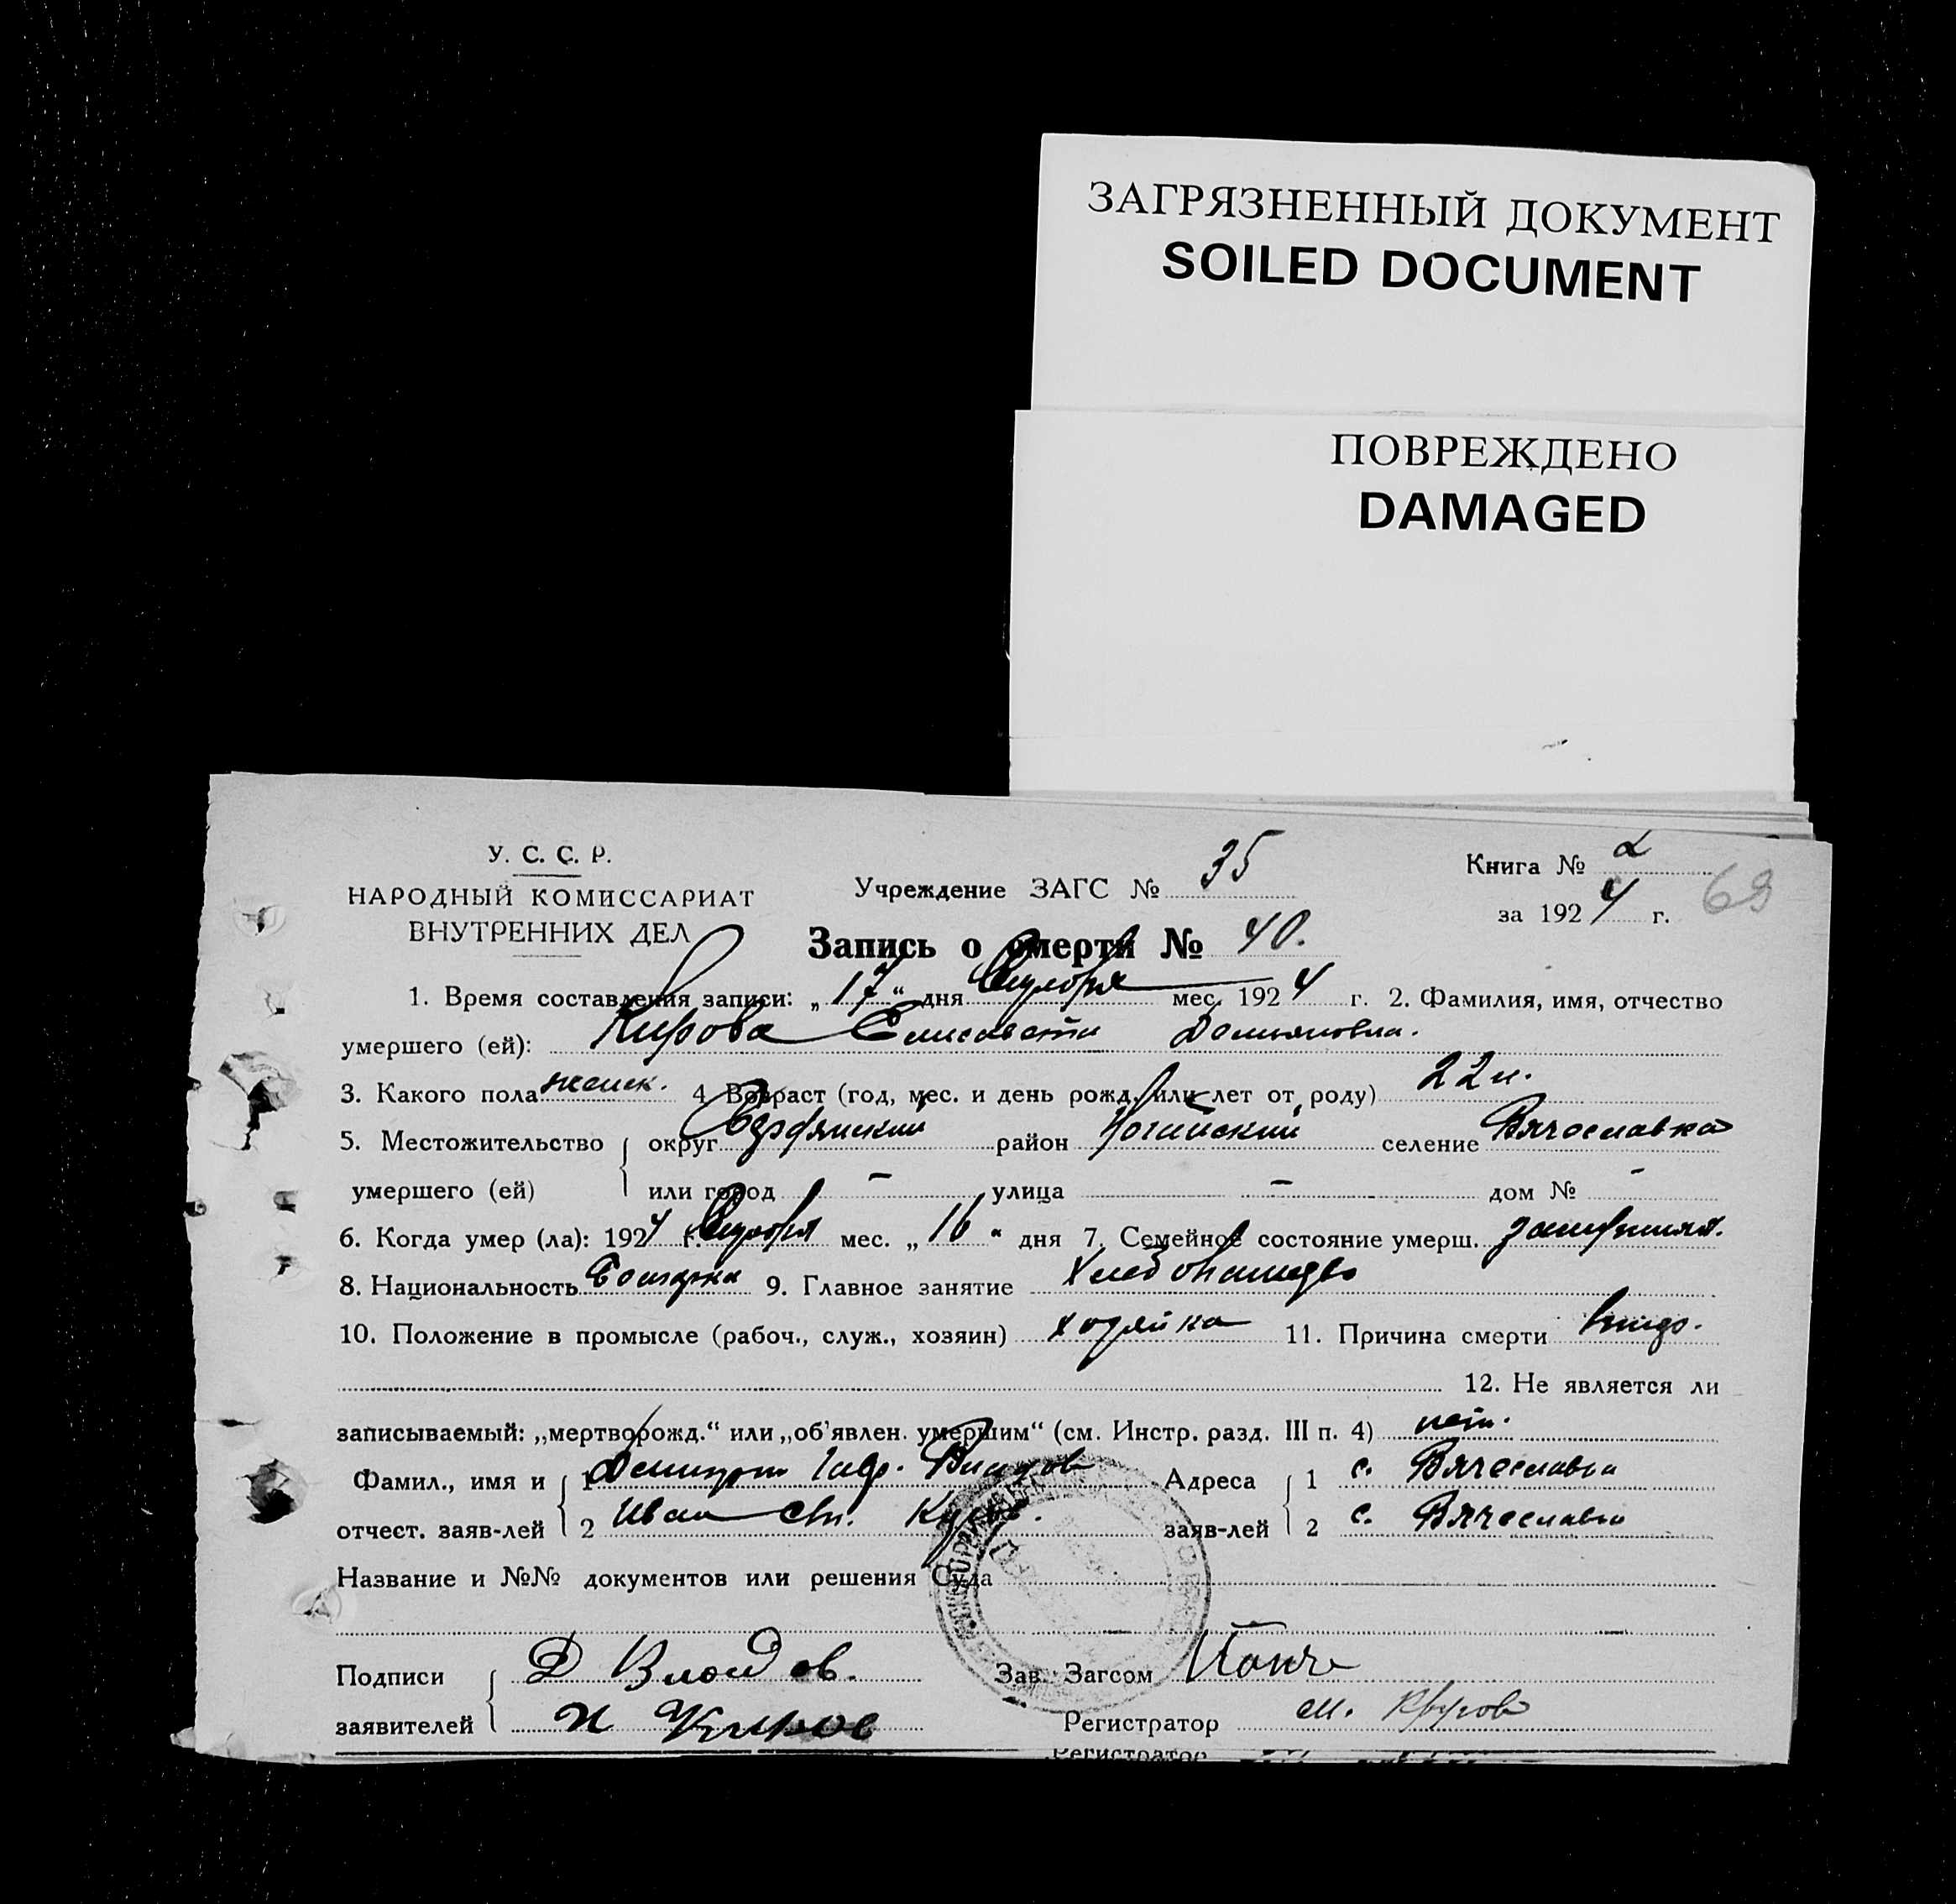 ЗАГРЯЗНЕННЫЙ ДОКУМЕНТ
SOILED DOCUMENT
ПОВРЕЖДЕНО
DAMAGED
У. С. С. Р.
НАРОДНЫЙ КОМИССАРИАТ
ВНУТРЕННИХ ДЕЛ
Учреждение ЗАГС № 35
Книга № 2
за 1924 г. 69
Запись о смерти № 40.
1. Время составления записи: „17“ дня мес. 1924 г. 2. Фамилия, имя, отчество
умершего (ей): Кирова Елисавета Демьяновна.
3. Какого пола женск. 4 Возраст (год, мес. и день рожд. или лет от роду) 22 л.
5. Местожительство округ Бердянский район Ногайский селение Вячеславка
умершего (ей) или город – улица – дом № –
6. Когда умер (ла): 1924 г. мес. „16“ дня 7. Семейное состояние умерш. замужняя.
8. Национальность Болгарка 9. Главное занятие Хлебопашество
10. Положение в промысле (рабоч., служ., хозяин) хозяйка 11. Причина смерти
12. Не является ли
записываемый: „мертворожд.“ или „об'явлен. умершим“ (см. Инстр. разд. III п. 4) нет.
Фамил., имя и 1 Гавр. Адреса 1 с. Вячеславка
отчест. заяв-лей 2 Иван Киров. заяв-лей 2 с. Вячеславка
Название и №№ документов или решения Суда
Подписи Д Зав. Загсом
заявителей И Киров Регистратор
Регистратор